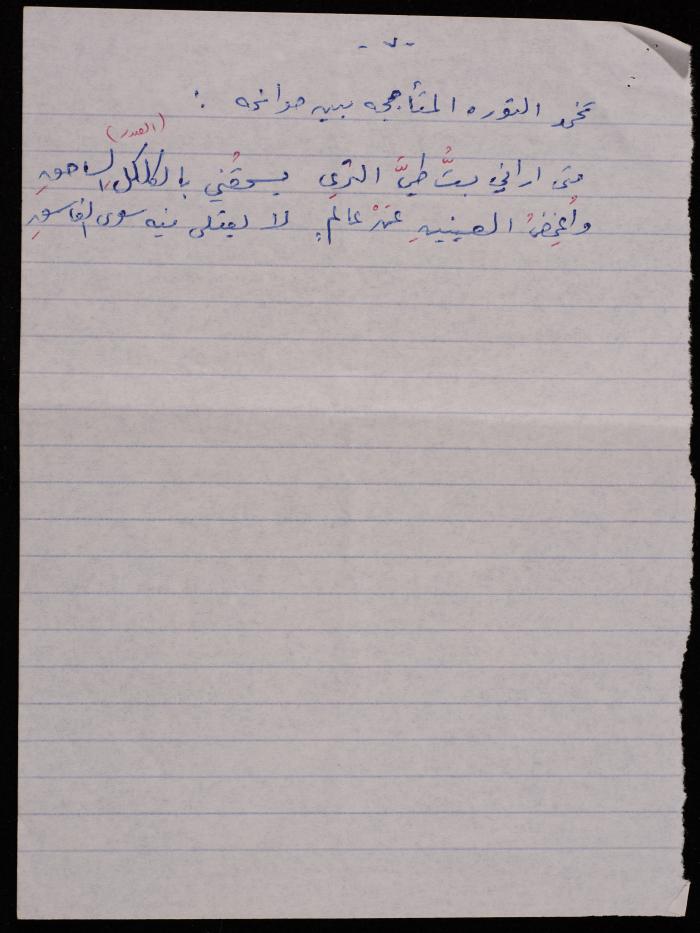 - ٧ -
تخمد الثوره المتأججه بين جوانحه :
(الصدر)
متى اراني بتُّ طيَّ الثرى يسحقُني بالكلكلِ الساحقِ
وأُغمِضُ العينينِ عَنْ عالمٍ لا يعتلى فيه سوى الفاسقِ